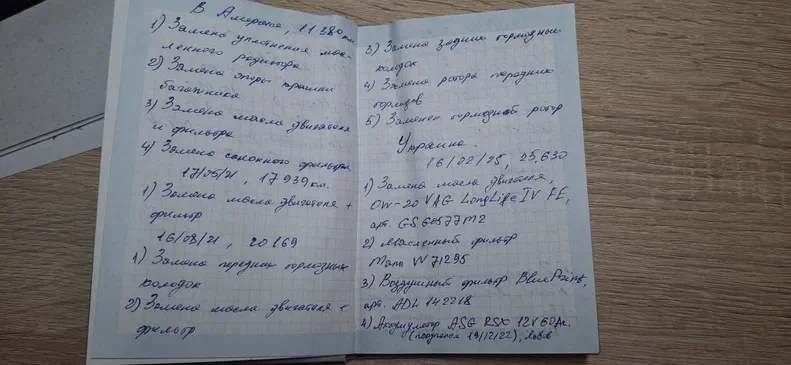 В Америке, 11 380 км
1) Замена уплотнения мас-
ленного радиатора
2) Замена опоры крышки
багажника
3) Замена масла двигателя
и фильтра
4) Замена салонного фильтра
17/05/21, 17 939 км.
1) Замена масла двигателя +
фильтр
16/08/21, 20 169
1) Замена передних тормозных
колодок
2) Замена масла двигателя +
фильтр
3) Замена задних тормозных
колодок
4) Замена ротора передних
тормозов
5) Заменен тормозной ротор
Украина.
16/02/25, 25,630
1) Замена масла двигателя,
0W-20 VAG LongLife IV FE,
арт. GS60577M2
2) Масленный фильтр
Mann W 71295
3) Воздушный фильтр BluePrint,
арт. ADL 142218
4) Аккумулятор ASG RSX 12V 60Ач.
19/12/22), Львів